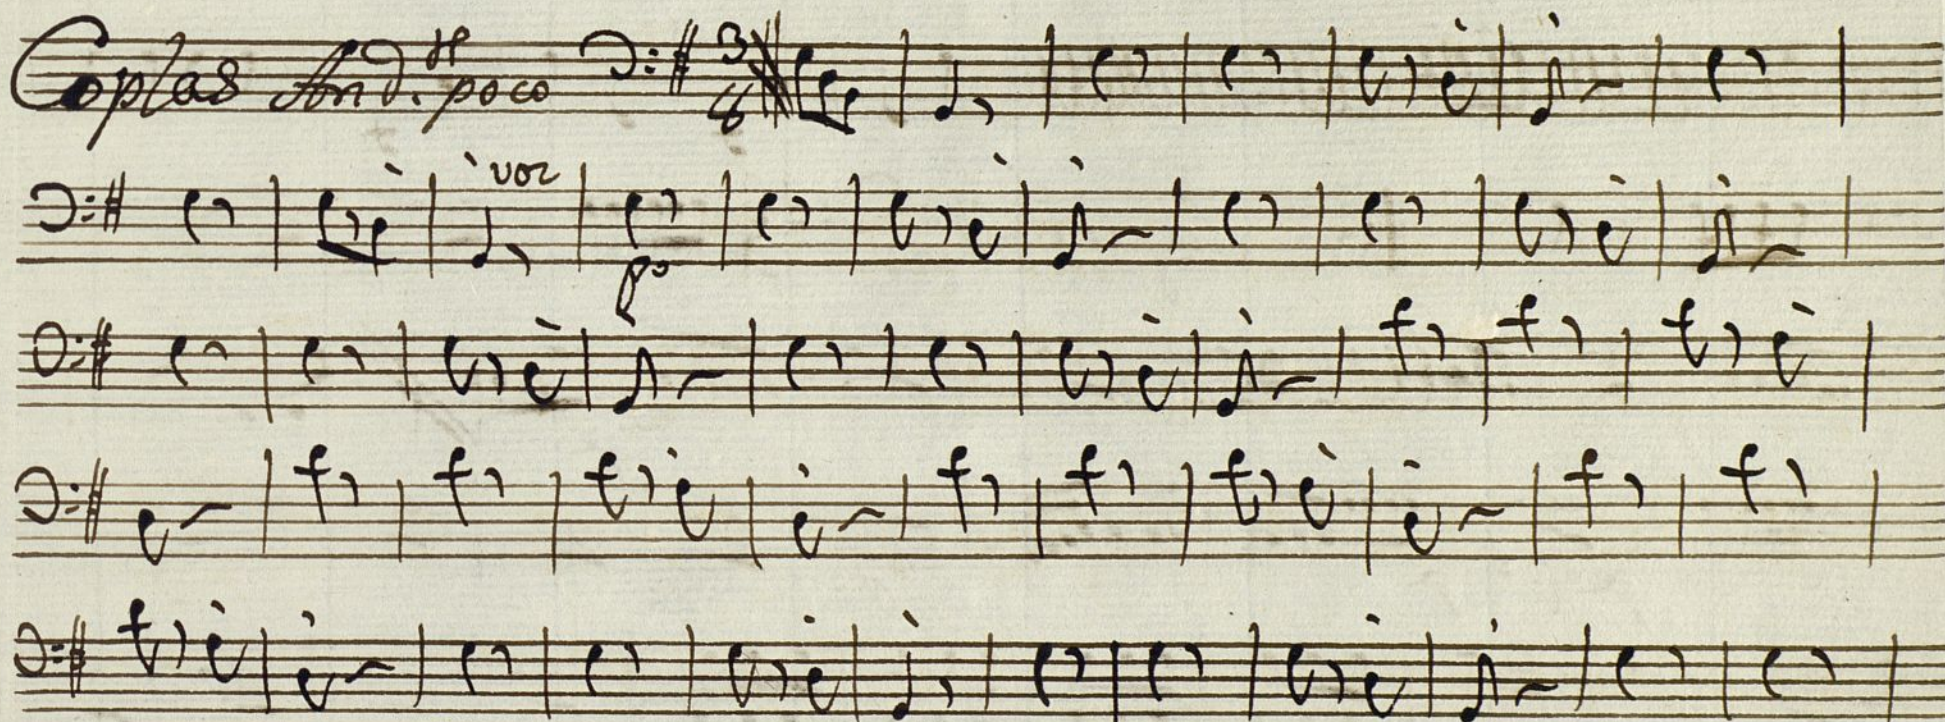 Coplas And.te poco 3 8
voz
po